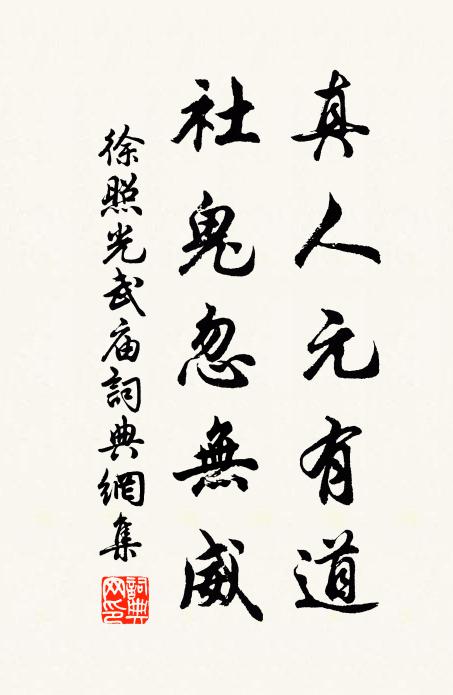 真人元有道
社鬼忽無威
徐照光武庙詞典網集
詞典网印